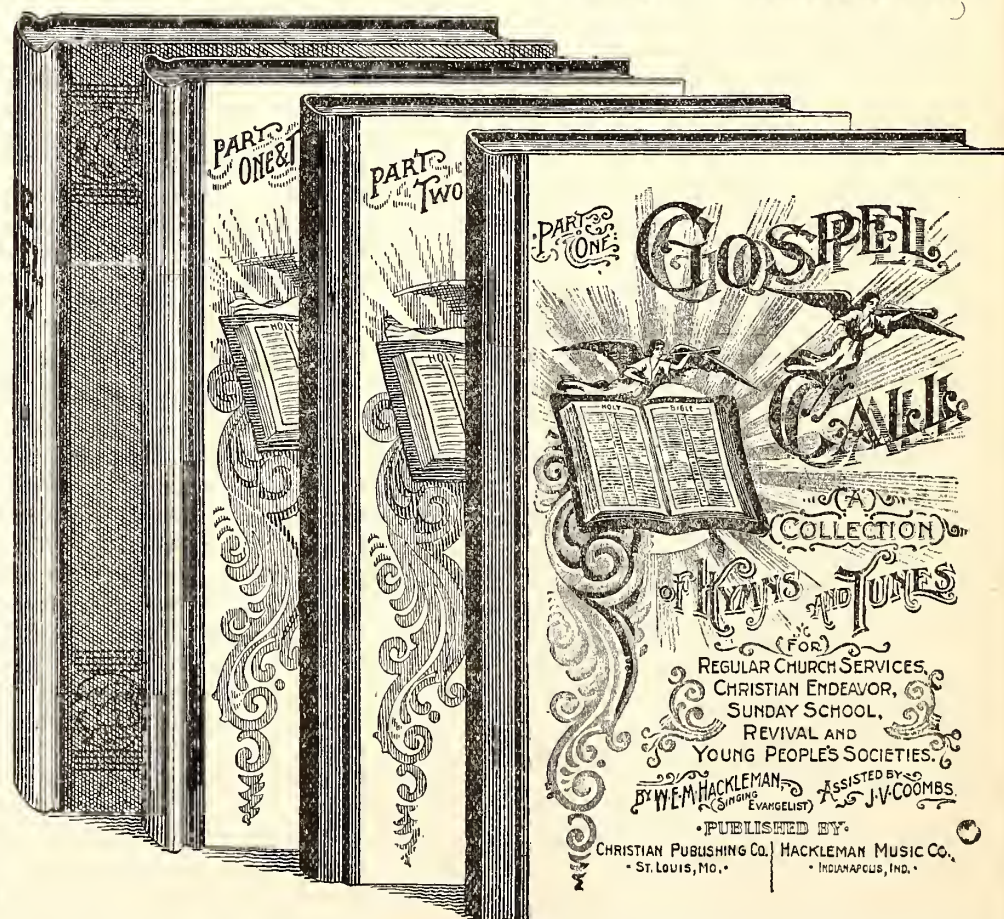 PART
ONE &
PART
TWO
HOLY
HOLY
PART
ONE
GOSPEL
CALL
HOLY BIBLE
A
COLLECTION
OF HYMNS AND TUNES
FOR
REGULAR CHURCH SERVICES,
CHRISTIAN ENDEAVOR,
SUNDAY SCHOOL,
REVIVAL AND
YOUNG PEOPLE'S SOCIETIES.
BY W.E.M. HACKLEMAN,
(SINGING EVANGELIST)
ASSISTED BY
J.V. COOMBS.
• PUBLISHED BY •
CHRISTIAN PUBLISHING CO. HACKLEMAN MUSIC CO.,
• ST. LOUIS, MO. • • INDIANAPOLIS, IND. •